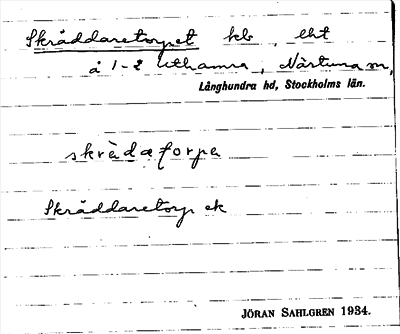 Skräddaretorpet lht
å 1-2 Uthamra, Närtuna sn,
Långhundra hd, Stockholms län.
skrädaforpa
Skräddaretorp ek
JÖRAN SAHLGREN 1934.